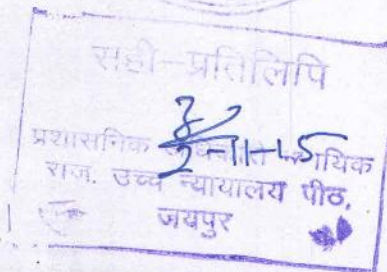 सही-प्रतिलिपि
2-11-15
प्रशासनिक न्यायिक
राज. उच्च न्यायालय पीठ,
जयपुर